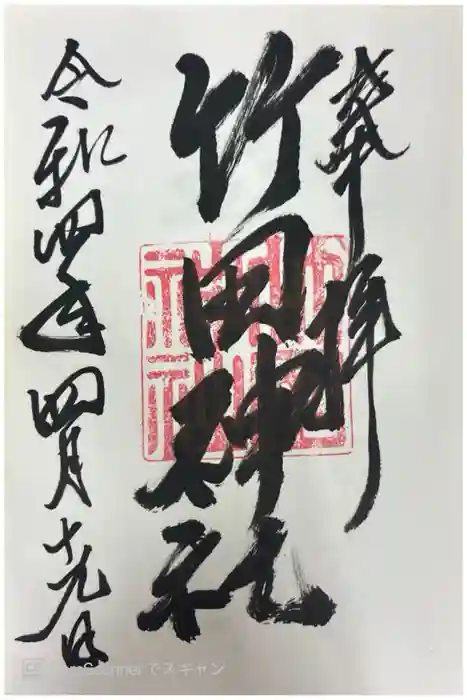 奉拝
竹田神社
令和四年四月十九日
CamScannerでスキャン